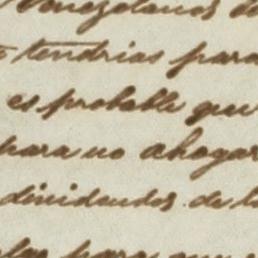 Venezolanos de
tendrias para
es probable que
para no ahogar
dividendos de l
para que